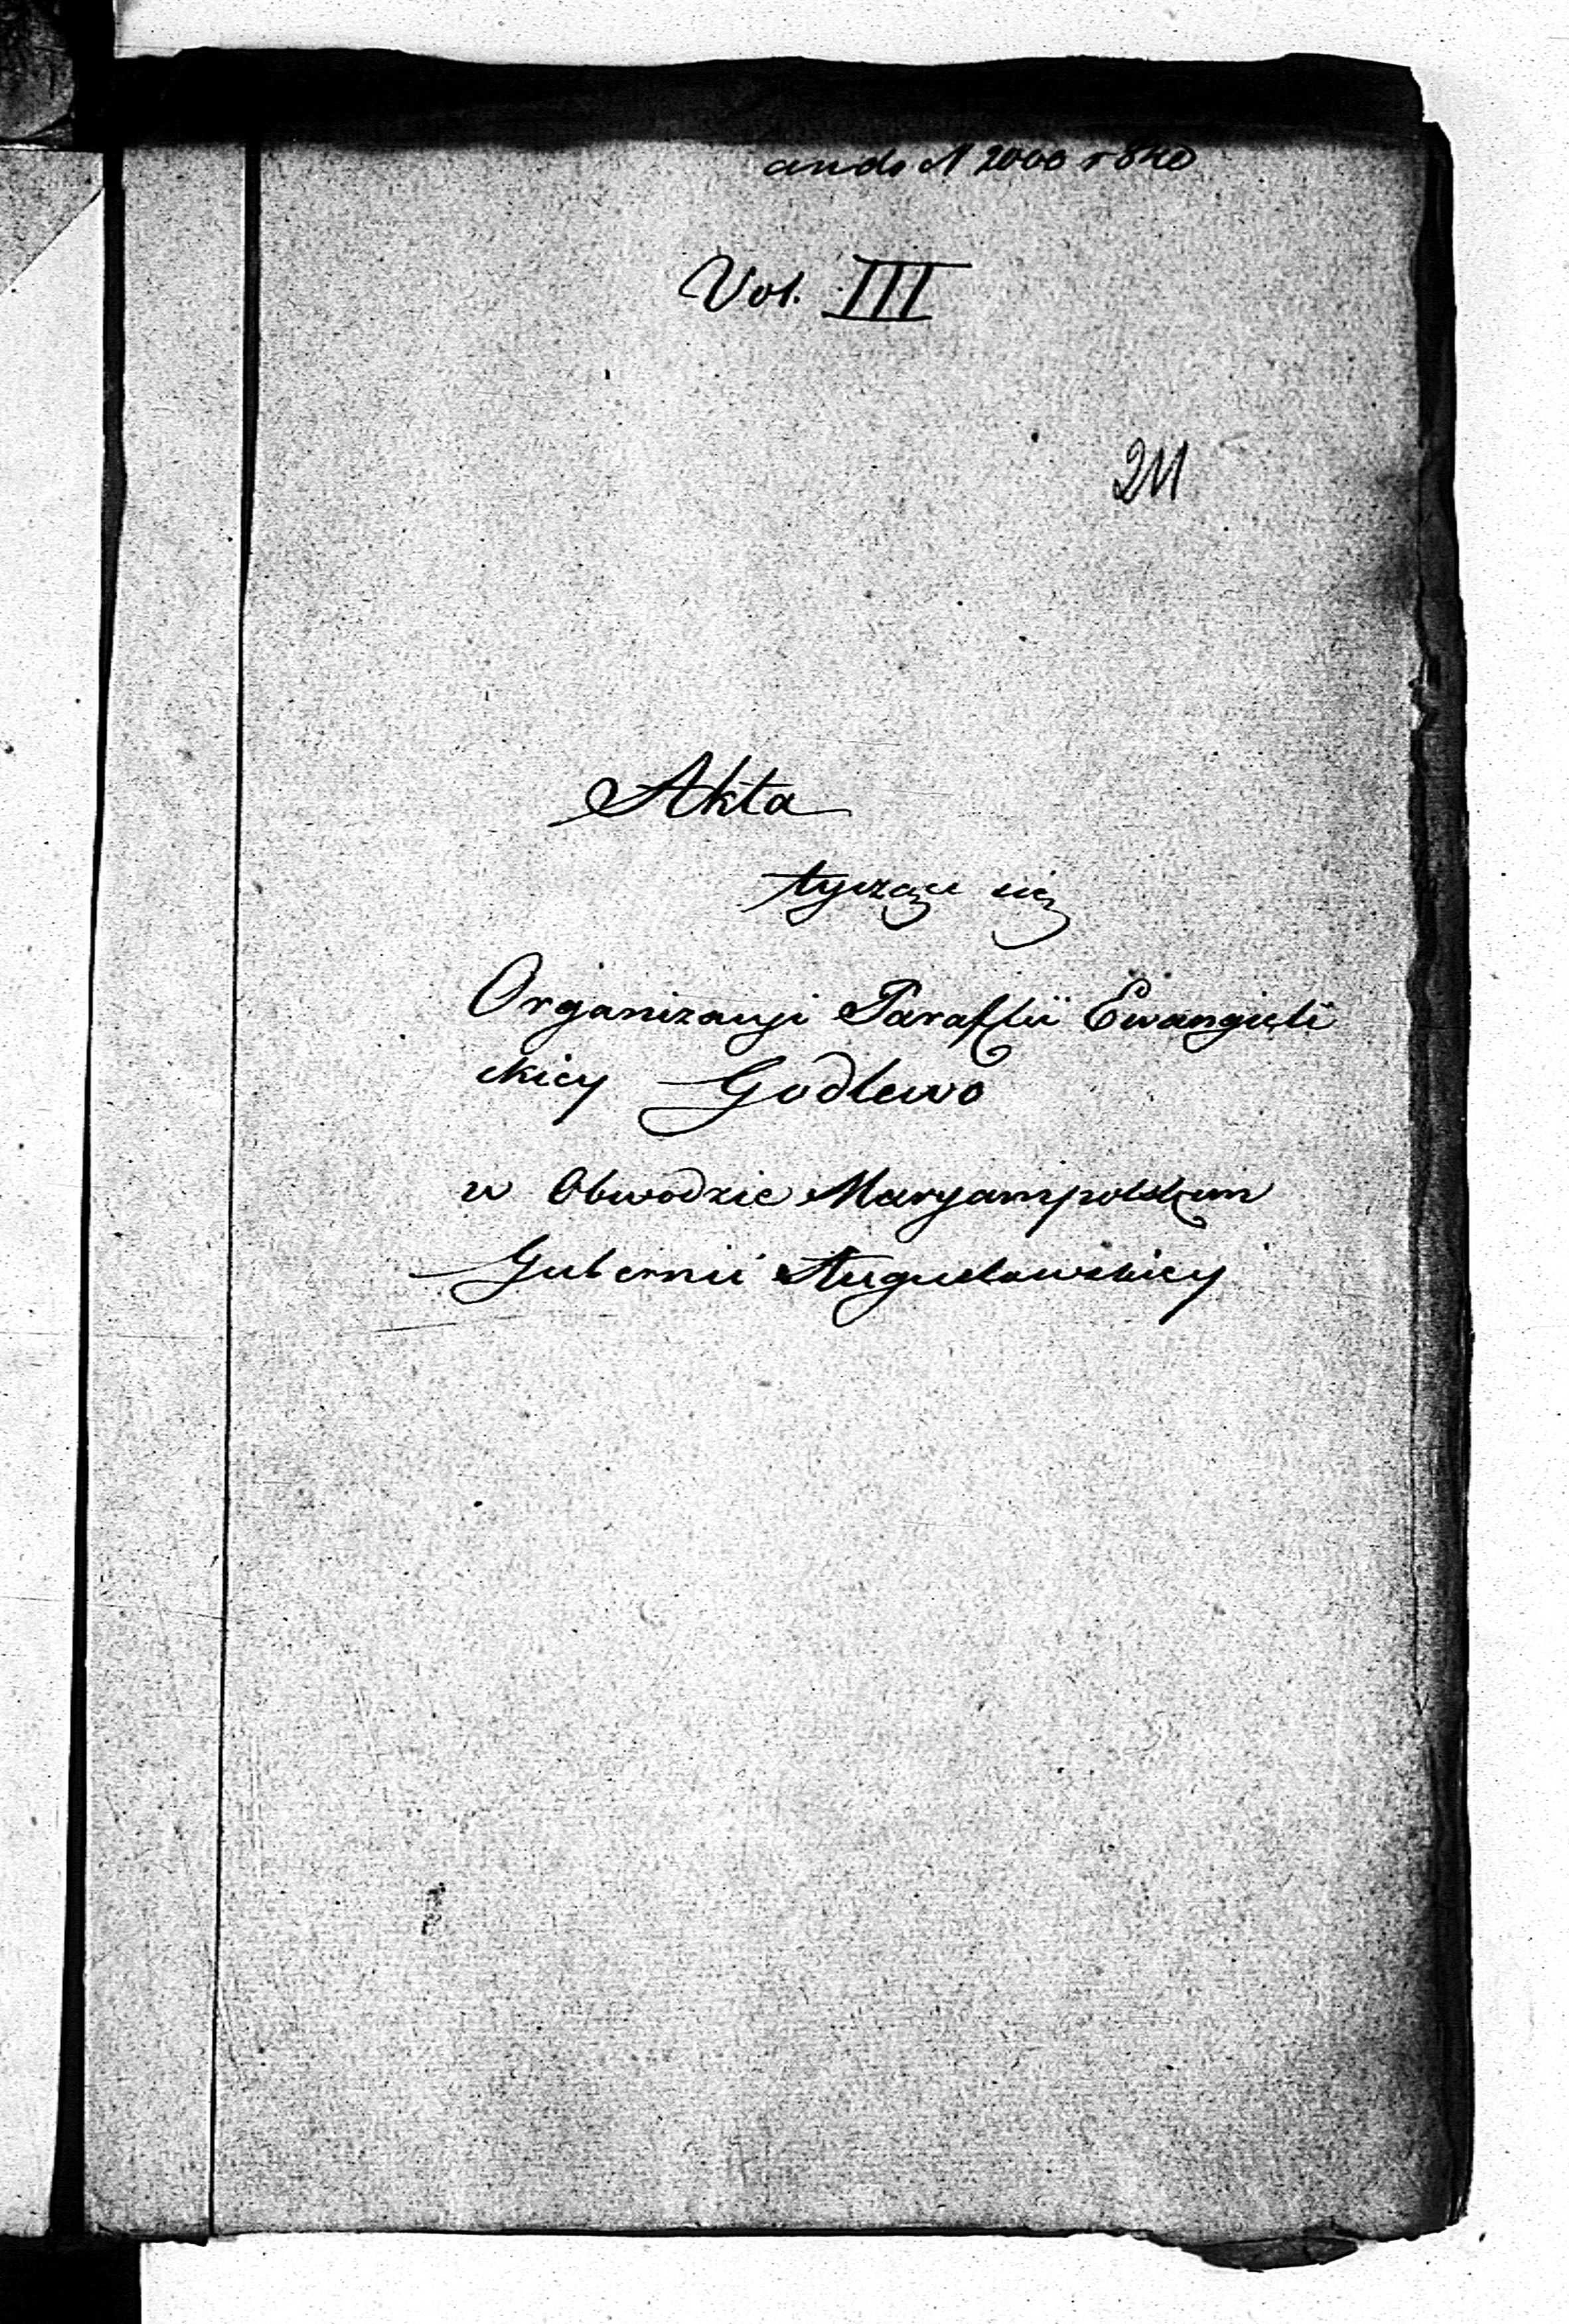 ands N 2000 r 840
Vol. III
211
Akta
tyczące się
Organizacyi Parafii Ewangieli
ckiey Godlewo
w Obwodzie Maryampolskim
Gubernii Augustowskiey